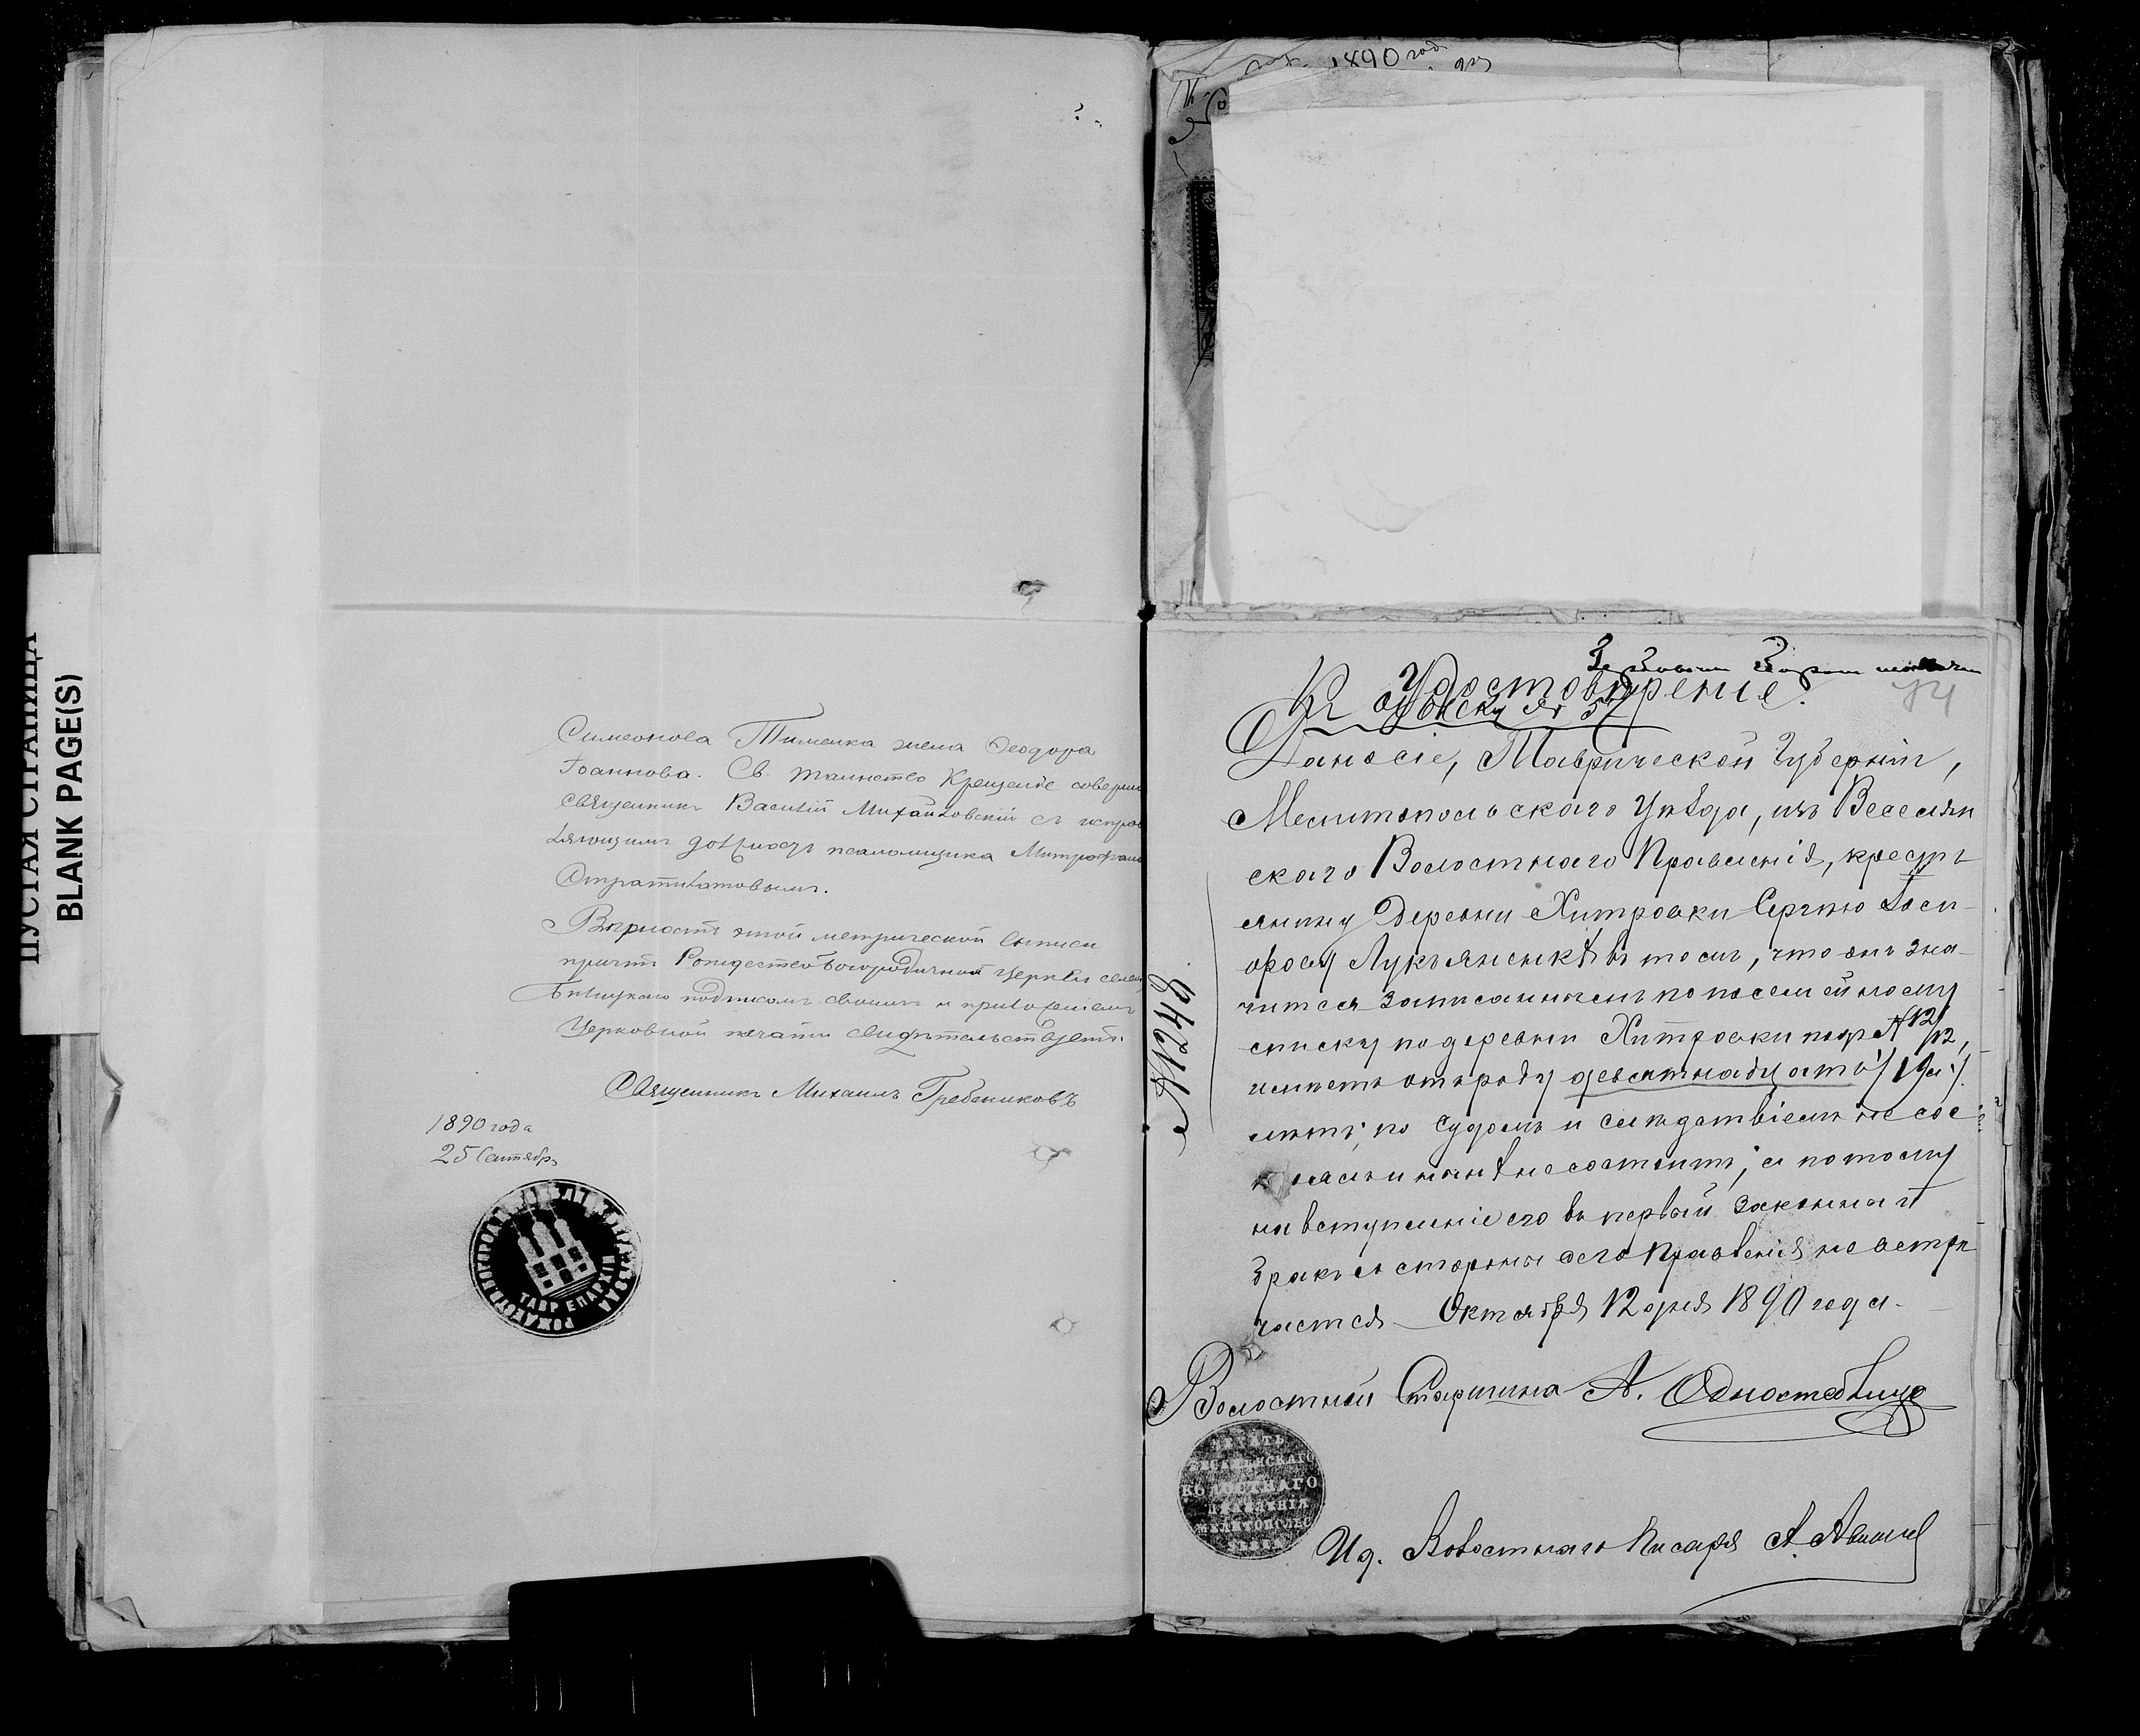 ПУСТАЯ СТРАНИЦА
BLANK PAGE(S)
Симеонова Тименка жена Ѳеодора
Іоаннова. Св. таинство Крещеніе соверши
Священникъ Василій Михайловскій съ исправ
ляющимъ должность псаломщика Митрофаном
Стратилатовымъ.
Вѣрность этой метрической выписи
причтъ Рождество Богородичной Церкви села
подписомъ своимъ и приложеніемъ
Церковной печати свидѣтельствуетъ.
Священникъ Михаилъ Гребениковъ
1890 года
25 Сентября
ТАВР ЕПАРХІИ
РОЖДЕСТВО БОГОРОДИ
1890 года
74
Удостовѣреніе.
Къ обыску № 57
Дано сіе, Таврической Губерніи,
Мелитопольскаго Уѣзда, изъ Веселян
скаго Волостнаго Правленія, кресть
янину деревни Хитровки Сергѣю
Лукьяненкѣ въ томъ, что онъ зна-
чится записаннымъ по посемейному
списку по деревни Хитровки подъ № 12/12,
имѣетъ отъ роду девятнадцать /19/
лѣтъ, подъ судомъ и слѣдствіемъ не сос
тоялъ и нынѣ не состоитъ, а потому
на вступленіе его въ первый законный
бракъ со стороны сего Правленія не встрѣ
чается Октября 12 дня 1890 года.
№ 1248
Волостной Старшина А. Одностолица
ПЕЧАТЬ
ВЕСЕЛЯНСКАГО
ВОЛОСТНАГО
ПРАВЛЕНІЯ
МЕЛИТОПОЛЬС
Ид. Волостнаго Писаря А.